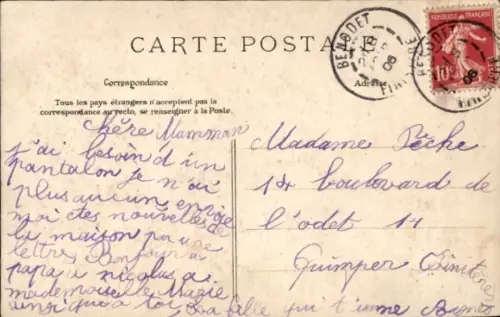 CARTE POSTA
Correspondance
Adresse
Tous les pays étrangers n'acceptent pas la
correspondance au recto, se renseigner à la Poste.
BENODET
FINISTERE
08
REPUBLIQUE FRANÇAISE
10
Chère Mamman
j'ai besoin d'un
pantalon je n'ai
plus aucun envoie
moi des nouvelles de
la maison par une
lettre Bonjour a
papa a nicolas a
mademoiselle Marie
ainsi qu'a toi ta fille qui t'aime
Madame Pêche
14 boulovard de
l'odet 14
Quimper Finistère